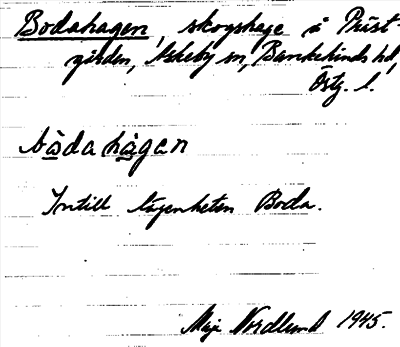 Bodahagen, skogshage i Präst-
gården, Askeby sn, Bankekinds hd,
Östg. l.
bͦåda hàgen
Intill lägenheten Boda.
Maj Nordlund 1945.